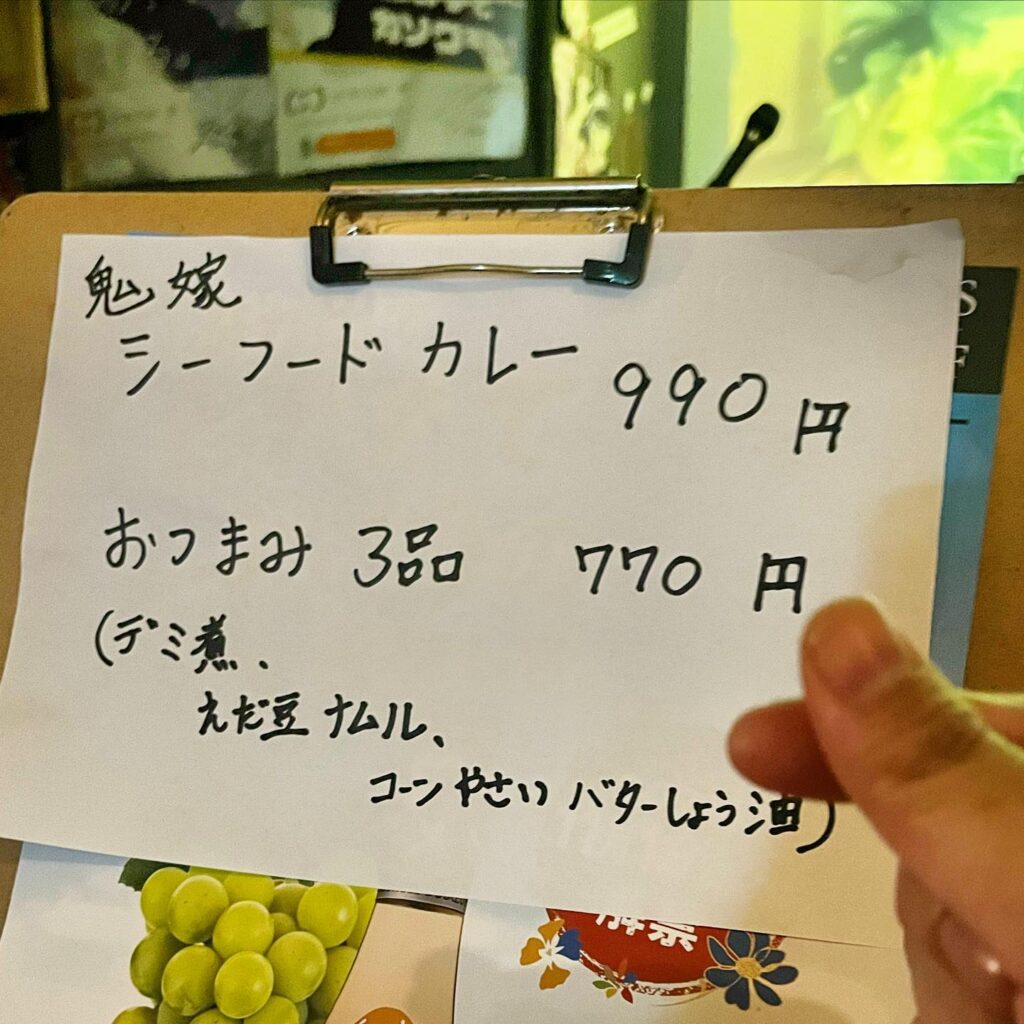 鬼嫁
シーフードカレー 990円
おつまみ 3品 770円
(デミ煮、
えだ豆ナムル、
コーンやさいバターしょう油)
解禁